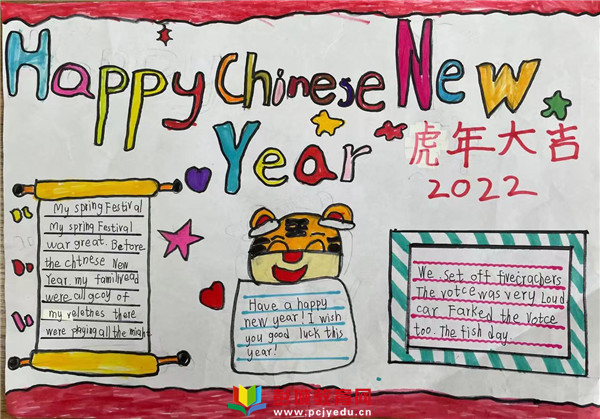 Happy Chinese New
Year
虎年大吉
2022
My spring Festival
My spring Festival
war great. Before
the chtnese New
Year. my familyead
were all gcoy of
my relethes there
were plaging all the might
Have a happy
new year! I wish
you good luck this
year!
We set off fivecrachers.
The votce was very Loud.
car Farked the votce
too. The fish day.
www.pcjyedu.cn